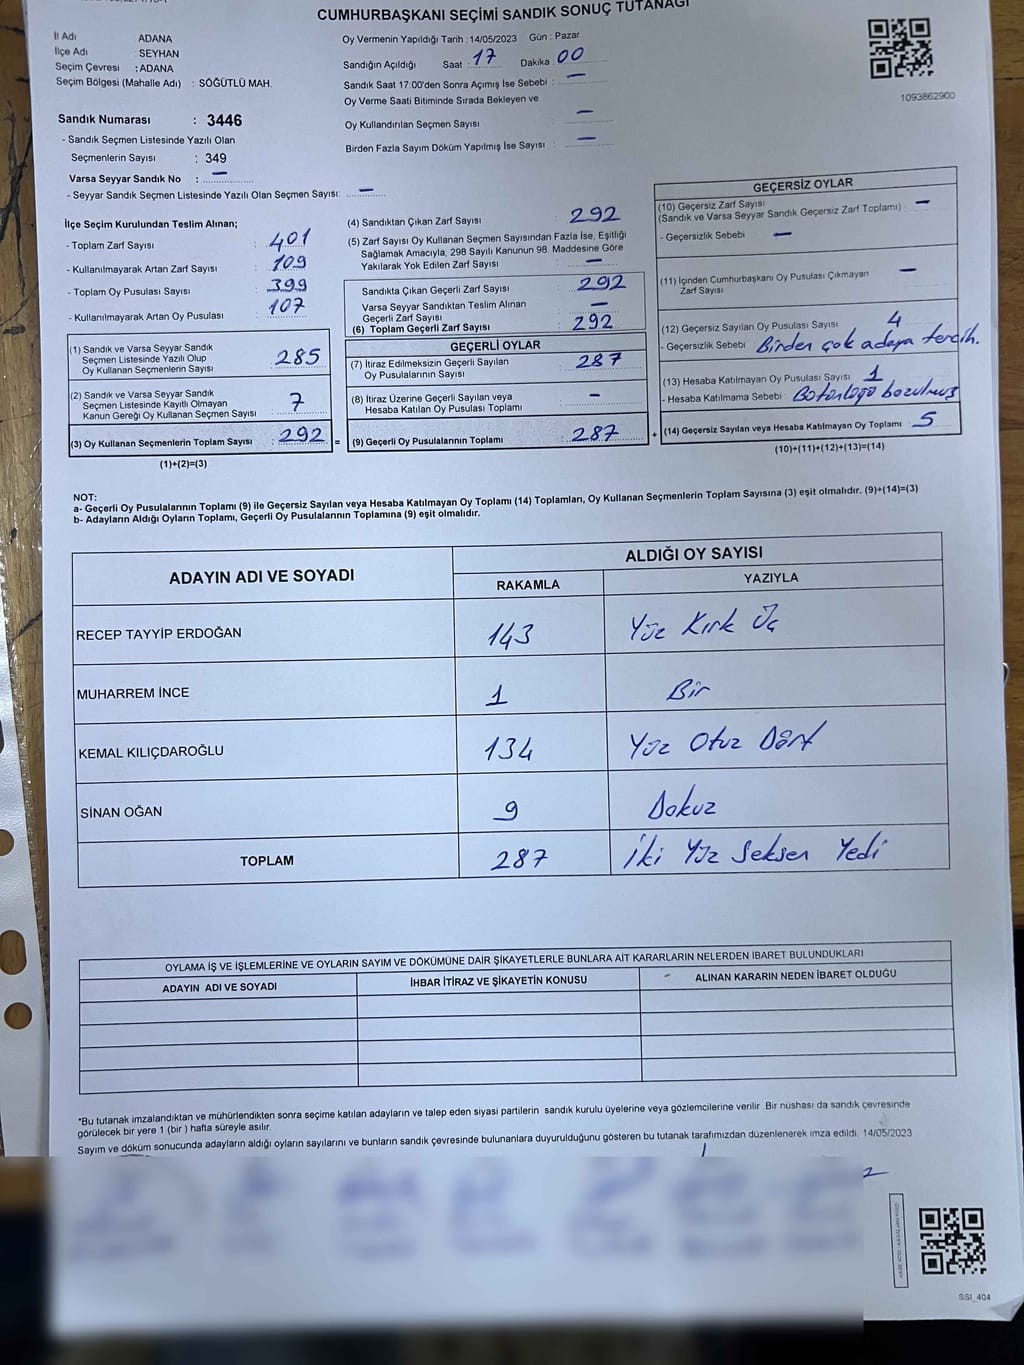 CUMHURBAŞKANI SEÇİMİ SANDIK SONUÇ TUTANAĞI
İl Adı ADANA
İlçe Adı : SEYHAN
Seçim Çevresi : ADANA
Seçim Bölgesi (Mahalle Adı) : SÖĞÜTLÜ MAH.
Oy Vermenin Yapıldığı Tarih : 14/05/2023 Gün : Pazar
Sandığın Açıldığı Saat : 17 Dakika : 00
Sandık Saat 17:00'den Sonra Açımış İse Sebebi : —
Oy Verme Saati Bitiminde Sırada Bekleyen ve
Oy Kullandırılan Seçmen Sayısı : —
Birden Fazla Sayım Döküm Yapılmış İse Sayısı : —
1093862900
Sandık Numarası : 3446
- Sandık Seçmen Listesinde Yazılı Olan
Seçmenlerin Sayısı : 349
Varsa Seyyar Sandık No : —
- Seyyar Sandık Seçmen Listesinde Yazılı Olan Seçmen Sayısı: —
İlçe Seçim Kurulundan Teslim Alınan;
- Toplam Zarf Sayısı : 401
- Kullanılmayarak Artan Zarf Sayısı : 109
- Toplam Oy Pusulası Sayısı : 399
- Kullanılmayarak Artan Oy Pusulası : 107
(1) Sandık ve Varsa Seyyar Sandık
Seçmen Listesinde Yazılı Olup
Oy Kullanan Seçmenlerin Sayısı : 285
(2) Sandık ve Varsa Seyyar Sandık
Seçmen Listesinde Kayıtlı Olmayan
Kanun Gereği Oy Kullanan Seçmen Sayısı : 7
(3) Oy Kullanan Seçmenlerin Toplam Sayısı : 292 =
(1)+(2)=(3)
(4) Sandıktan Çıkan Zarf Sayısı : 292
(5) Zarf Sayısı Oy Kullanan Seçmen Sayısından Fazla İse, Eşitliği
Sağlamak Amacıyla, 298 Sayılı Kanunun 98. Maddesine Göre
Yakılarak Yok Edilen Zarf Sayısı : —
Sandıkta Çıkan Geçerli Zarf Sayısı : 292
Varsa Seyyar Sandıktan Teslim Alınan
Geçerli Zarf Sayısı : —
(6) Toplam Geçerli Zarf Sayısı : 292
GEÇERLİ OYLAR
(7) İtiraz Edilmeksizin Geçerli Sayılan
Oy Pusulalarının Sayısı : 287
(8) İtiraz Üzerine Geçerli Sayılan veya
Hesaba Katılan Oy Pusulası Toplamı : —
(9) Geçerli Oy Pusulalarının Toplamı : 287 +
GEÇERSİZ OYLAR
(10) Geçersiz Zarf Sayısı
(Sandık ve Varsa Seyyar Sandık Geçersiz Zarf Toplamı) : —
- Geçersizlik Sebebi : —
(11) İçinden Cumhurbaşkanı Oy Pusulası Çıkmayan
Zarf Sayısı —
(12) Geçersiz Sayılan Oy Pusulası Sayısı : 4
- Geçersizlik Sebebi : Birden çok adaya tercih.
(13) Hesaba Katılmayan Oy Pusulası Sayısı : 1
- Hesaba Katılmama Sebebi : Bütünlüğü bozulmuş
(14) Geçersiz Sayılan veya Hesaba Katılmayan Oy Toplamı 5
(10)+(11)+(12)+(13)=(14)
NOT:
a- Geçerli Oy Pusulalarının Toplamı (9) ile Geçersiz Sayılan veya Hesaba Katılmayan Oy Toplamı (14) Toplamları, Oy Kullanan Seçmenlerin Toplam Sayısına (3) eşit olmalıdır. (9)+(14)=(3)
b- Adayların Aldığı Oyların Toplamı, Geçerli Oy Pusulalarının Toplamına (9) eşit olmalıdır.
ADAYIN ADI VE SOYADI ALDIĞI OY SAYISI
RAKAMLA YAZIYLA
RECEP TAYYİP ERDOĞAN 143 Yüz Kırk Üç
MUHARREM İNCE 1 Bir
KEMAL KILIÇDAROĞLU 134 Yüz Otuz Dört
SİNAN OĞAN 9 Dokuz
TOPLAM 287 İki Yüz Seksen Yedi
OYLAMA İŞ VE İŞLEMLERİNE VE OYLARIN SAYIM VE DÖKÜMÜNE DAİR ŞİKAYETLERLE BUNLARA AİT KARARLARIN NELERDEN İBARET BULUNDUKLARI
ADAYIN ADI VE SOYADI İHBAR İTİRAZ VE ŞİKAYETİN KONUSU ALINAN KARARIN NEDEN İBARET OLDUĞU
*Bu tutanak imzalandıktan ve mühürlendikten sonra seçime katılan adayların ve talep eden siyasi partilerin sandık kurulu üyelerine veya gözlemcilerine verilir. Bir nüshası da sandık çevresinde
görülecek bir yere 1 (bir ) hafta süreyle asılır.
Sayım ve döküm sonucunda adayların aldığı oyların sayılarını ve bunların sandık çevresinde bulunanlara duyurulduğunu gösteren bu tutanak tarafımızdan düzenlenerek imza edildi. 14/05/2023
SSI_404